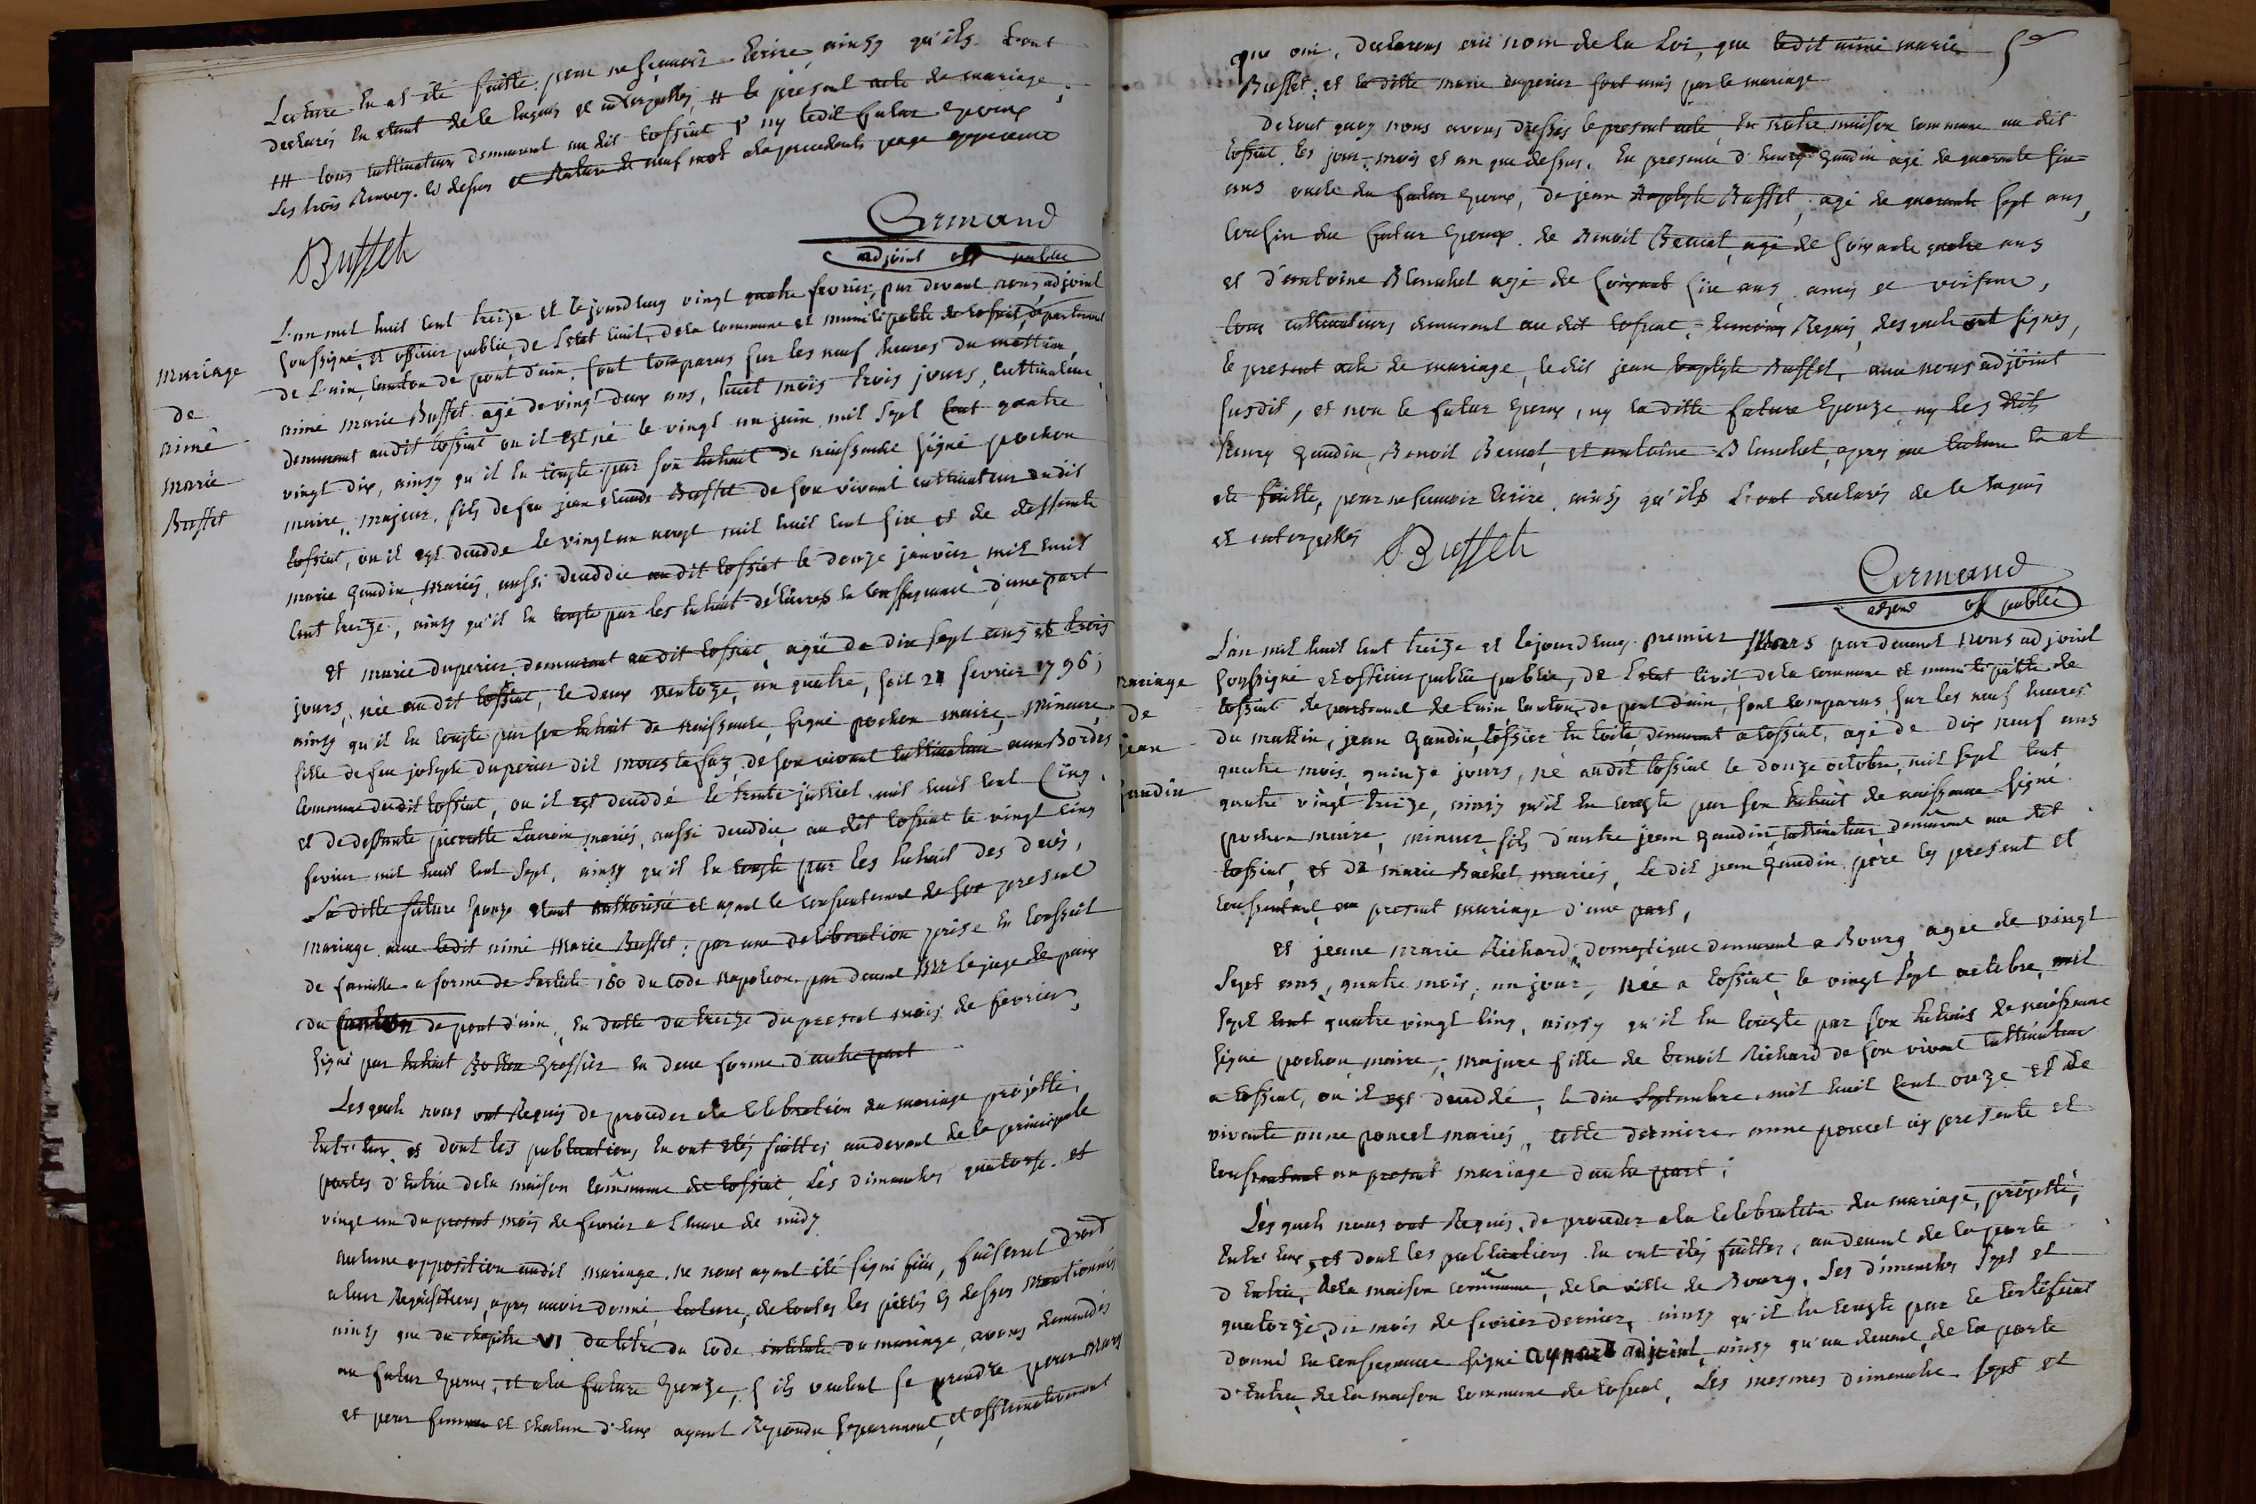 Lecture en at été faitte, pour ne sçavoir Ecrire, ainsy qu'ils L'ont
declarés en etant de le Enquis et interpellés, # le present acte de mariage
### tous cultivateurs demeurant au dit tossiat & ny ledit futur Epoux
Les trois Renvoy. cy dessus et Rature de neuf mot a la precedente page approuvé
Buffet
Armand
adjoint off public
mariage
de
aimé
marie
Buffet
L'an mil huit cent treize et le jourd'huy vingt quatre fevrier, par devant nous adjoint
soussigné, et officier public, de L'etat Civil, de la commune et municipalité de tossiat, departement
de L'ain, Canton de pont d'ain, sont comparus sur les neuf heures du mattin
aimé marie Buffet agé de vingt deux ans, huit mois trois jours, cultivateur
demeurant au dit tossiat ou il est né le vingt un juin mil sept Cent quatre
vingt dix, ainsy qu'il en conste par son Extrait de naissance signé pochon
maire, majeur, fils de feu jean claude Buffet de son vivant cultivateur au dit
tossiat, ou il est deceddé le vingt un aoust mil huit cent six et de deffunte
marie Gaudin, Mariés, aussi deceddée au dit tossiat le douze janvier mil huit
Cent treize, ainsy qu'il en conste par les Extrait délivrés en conséquence d'une part
et marie duperier demeurant au dit tossiat, agée de dix sept ans et trois
jours, née au dit tossiat, le deux ventoze, an quatre, soit 21 fevrier 1796,
ainsy qu'il en conste par son Extrait de naissance, signé pochon maire, Mineure,
fille de feu joseph duperier dit moustafaz, de son vivant cultivateur aux Bordes
Commune dudit tossiat, ou il est deceddé le trente juillet mil huit cent Cinq.
et de deffunte pierrette Lacroix mariés, aussi deceddée, au dit tossiat le vingt cinq
fevrier mil huit cent sept, ainsy qu'il en conste par les Extrait des decès,
La ditte future Epouze etant authorisée et ayant le consentement de son present
mariage avec ledit aimé Marie Buffet: par une deliberation prise en Conseil
de famille a forme de L'article 160 du Code Napoleon par devant Mr le juge de paix
du Canton de pont d'ain, en datte du treize du present mois de fevrier,
signé par Extrait Greffier en due forme d'autre part
Lesquels nous ont Requis de proceder a la Celebration du mariage projetté,
Entr'Eux, et dont les publications en ont étés faittes au devant de la principale
portes d'Entrée de la maison Commune de tossiat, Les dimanches quatorze et
vingt un du present mois de fevrier a L'heure de midy
aucune opposition audit mariage ne nous ayant été signifiée, faisant droit
a leur Requisitions, apres avoir donné lecture, de toutes les pieces cy dessus mentionnés
ainsy que du chapitre VI du titre du Code intitulé du mariage, avons demandés
au futur Epoux, et a la future Epouze, s'ils veulent se prendre pour Mary
et pour femme et chacun d'Eux ayant Repondu separement et affirmativement
que oui, declarons au nom de la Loi, que ledit aimé marie
5e
Buffet, et la ditte marie duperier sont unis par le mariage
de tout quoy nous avons dressés le present acte En nôtre maison commune au dit
tossiat, les jour, mois et an que dessus. En presence d'henry Gaudin agé de quarante six
ans oncle du futur Epoux, de jean Baptiste Buffet, agé de quarante sept ans,
Cousin du futur Epoux. de Benoit agé de soixante quatre ans
et d'antoine Blanchet agé de Cinquante six ans, amis et voisins,
tous cultivateurs demeurant au dit tossiat, temoins Requis, des quels ont signés,
le present acte de mariage, le dit jean baptiste Buffet, avec nous adjoint
susdit, et non le futur Epoux, ny la ditte future Epouze, ny les dits
henry Gaudin, Benoit et antoine Blanchet, apres que lecture En at
eté faitte, pour ne scavoir Ecrire, ainsy qu'ils L'ont declarés de le Enquis
et interpellés
Buffet
Armand
adjoint off public
mariage
de
jean
Gaudin
L'an mil huit cent treize et lejourd'huy premier Mars pardevant nous adjoint
soussigné et officier public public, de L'etat Civil de la commune et municipalité de
tossiat departement de L'ain canton de pont d'ain, sont comparus, sur les neuf heures
du mattin, jean Gaudin, tissier En toile, demeurant a tossiat, agé de dix neuf ans
quatre mois, quinze jours, né au dit tossiat le douze octobre, mil sept cent
quatre vingt treize, ainsy qu'il En conste par son Extrait de naissance signé
pochon maire, mineur, fils d'autre jean Gaudin, cultivateur, demeurant au dit
tossiat, et de marie Bachet mariés, Le dit jean Gaudin père icy present et
Consentant, au present mariage d'une part,
et jeanne marie Richard, domestique demeurant a Bourg agée de vingt
sept ans, quatre mois, un jour, née a tossiat, le vingt sept octobre, mil
sept cent quatre vingt cinq, ainsy qu'il En conste par son Extrait de naissance
signé pochon maire, majeure fille de benoit Richard de son vivant cultivateur
a tossiat, ou il est deceddé, le dix septembre, mil huit cent onze et de
vivante anne poncet mariés, cette derniere anne poncet icy presente et
Consentant au present mariage d'autre part;
Les quels nous ont Requis, de proceder a la Celebration du mariage, projetté,
Entr'Eux, et dont les publications En ont étés faittes, au devant de la porte
d'Entrée, de la maison commune, de la ville de Bourg, Les dimanches sept et
quatorze, du mois de fevrier dernier, ainsy qu'il En conste par le certificat
donné En consequence signé aynard adjoint, ainsy qu'au devant, de la porte
d'Entrée de la maison Commune de tossiat, Les mesmes dimanche sept et